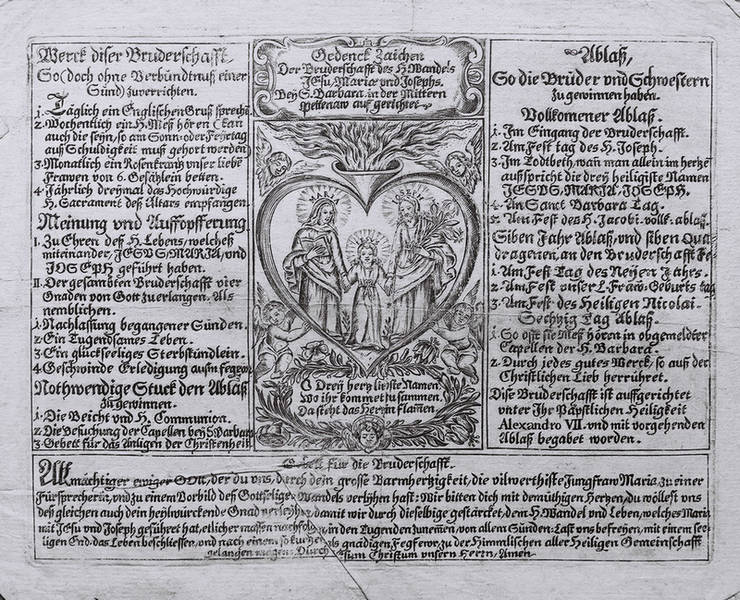 Werck diser Bruderschafft
So (doch ohne Verbündtnus einer
Sünd) zuverrichten.
1. Täglich ein Englischen Gruß sprechē
2. Wochentlich ein H. Meß hören Tan
auch die seyn, so an Sonn- oder Feyrtag
auß Schuldigkeit muß gehört werden
3. Monatlich ein Rosenkrantz unser liebē
Frawen von 6. Gesätzlein betten.
4. Jährlich dreymal das Hochwürdige
H. Sacrament des Altars empfangen.
Meinung und Auffopfferung
I. Zu Ehren deß H. Lebens, welcheß
miteinander, JESVS, MARJA, und
JOSEPH geführt haben.
II. Der gesambten Bruderschafft vier
Gnaden von Gott zuerlangen. Als
nemblichen.
1. Nachlassung begangener Sünden.
2. Ein Tugendsames Leben.
3. Ein glückseeliges Sterbstündlein.
4. Geschwinde Erledigung auß fegew̄
Nothwendige Stuck den Ablaß
zu gewinnen.
1. Die Beicht und H. Communion.
2. Die Besuchung der Capellen bey S. Barbara
3. Gebett für das Anligen der Christenheit
Gedenck Zaichen
Der Bruderschafft des H. Wandels
Jesu, Mariæ und Josephs.
Bey S. Barbara in der Mittern
Spettenaw auf gerichtet.
O Drey hertz liebste Namen,
Wo ihr kommet zusammen,
Da steht das Hertz in Flamen
Ablaß,
So die Brüder und Schwestern
zu gewinnen haben.
Vollkomener Ablaß.
1. Im Eingang der Bruderschafft.
2. Am Fest tag des H. Joseph.
3. Im Todtbeth, wan man allein im hertzē
ausspricht die drey heiligiste Namen
JESVS, MARJA, JOSEPH.
4. Am Sanct Barbara Tag.
5. Am Fest des H. Jacobi. voll k. ablaß.
Siben Jahr Ablaß, und siben Qua
dragenen, an den Bruderschafft Fe-
1. Am Fest Tag des Neyen Jahrs.
2. Am Fest unser L. Fraw̄. Geburts tag
3. Am Fest des Heiligen Nicolai.
Sechzig Tag Ablaß.
1. So offt sie Meß hören in obgemeldter
Capellen der H. Barbara.
2. Durch jedes gutes Werck, so auß der
Christlichen Lieb herrühret.
Dise Bruderschafft ist auffgericht
unter Ihr Päpstlichen Heiligkeit
Alexandro VII. und mit vorgehenden
Ablaß begabet worden.
Gebett für die Bruderschafft.
Allmächtiger ewiger GOtt, der du uns, durch dein grosse Barmhertzigkeit, die vilwerthiste Jungfraw Maria, zu einer
Fürsprecherin, und zu einem Vorbild deß Gottseligen Wandels verlyhen hast: Wir bitten dich mit demüthigen Hertzen, du wöllest uns
deß gleichen auch dein heylwürckende Gnad verleyhen, damit wir durch dieselbige gestärcket, dem H. Wandel und Leben, welches Maria
mit Jesu und Joseph geführet hat, etlicher massen nachfolgen, in den Tugenden zunemen, von allem Sünden-Last uns befreyen, mit einem see-
ligen End, das Leben beschliessen, und nach einem so kurtzen als gnädigen Fegfewr, zu der Himmlischen aller Heiligen Gemeinschafft
gelangen mögen. Durch Jesum Christum unsern Herrn, Amen.